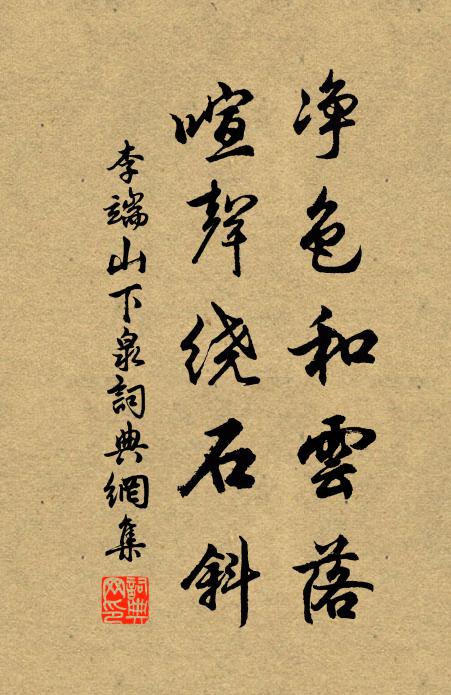 净色和雲落
喧聲绕石斜
李端山下泉詞典網集
詞典网印